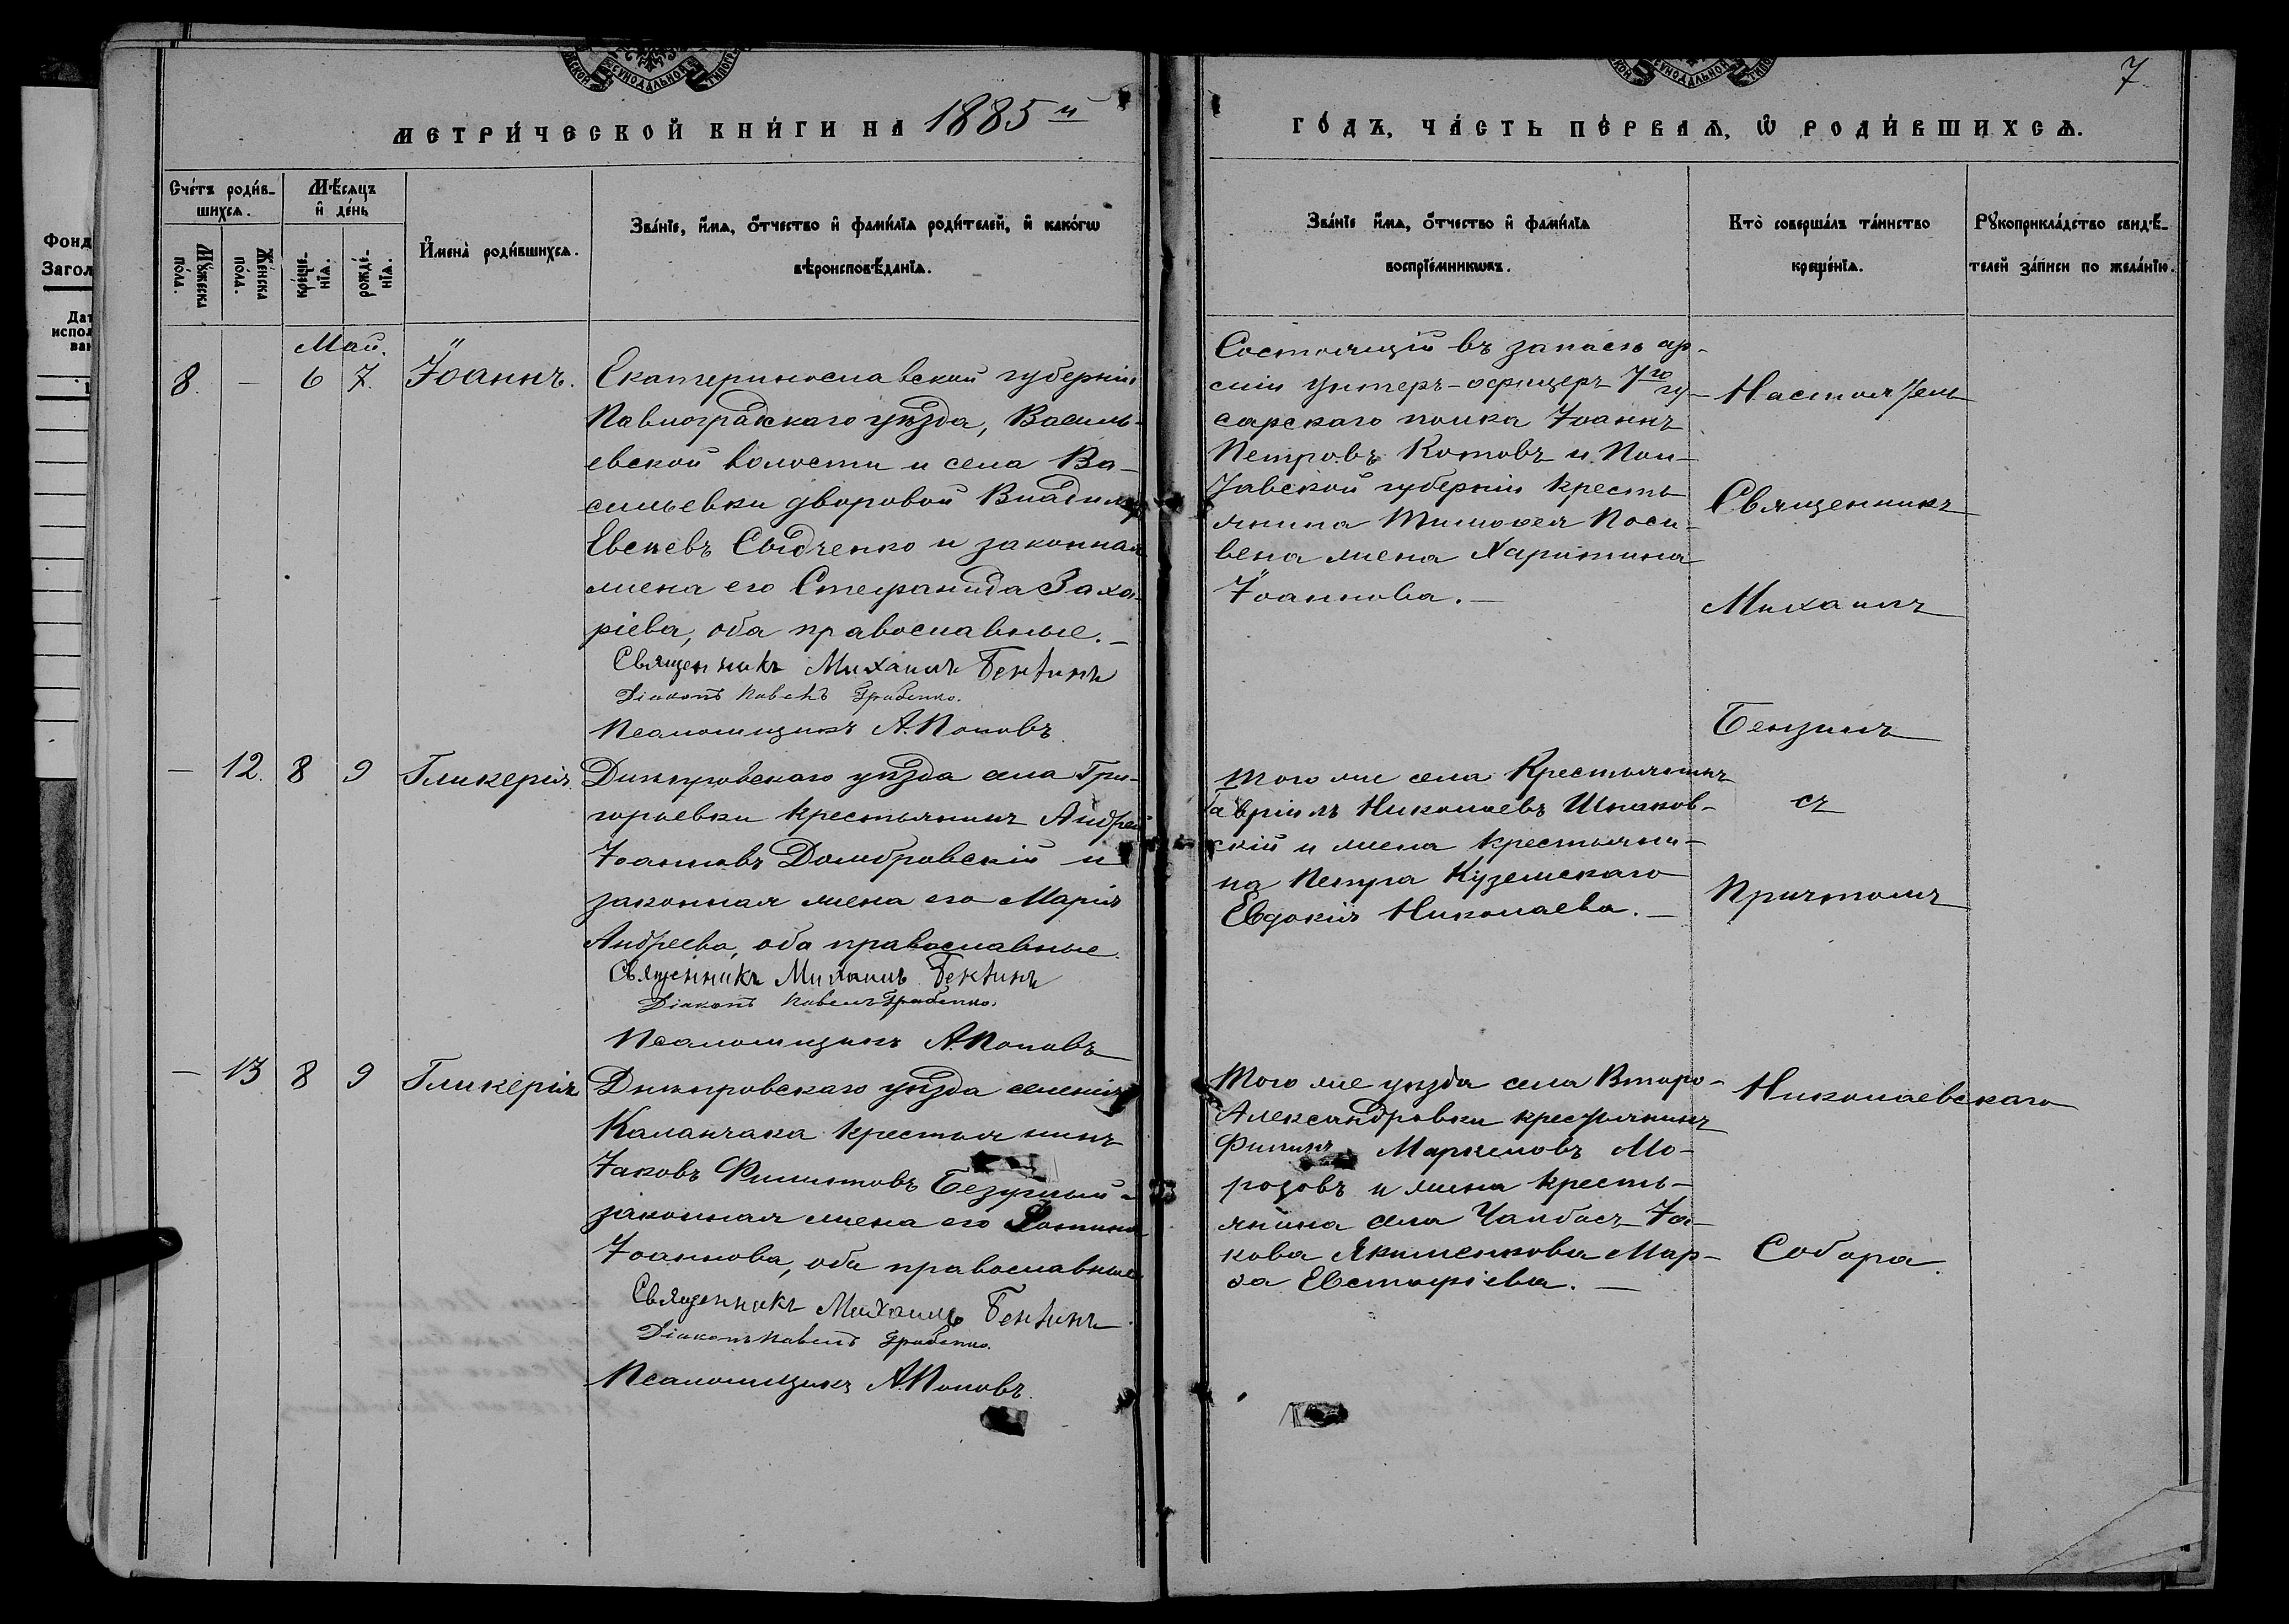 7
МЕТРИ́ЧЕСКОЙ КНИ́ГИ НА 1885й
ГО́ДЪ, ЧА́СТЬ ПЕ́РВАѦ, Ѡ҆ РОДИ́ВШИХСѦ.
Сче́тъ роди́в-
шихсѧ.
Мѣ́сѧцъ
и҆ де́нь
Мꙋ́жеска
по́ла.
Же́нска
по́ла.
креще́-
нїѧ.
рожде́-
нїѧ.
И҆мена̀ роди́вшихсѧ.
Зва́нїе, и҆́мѧ, ѻ҆́тчество и҆ фами́лїѧ роди́телей, и҆ како́гѡ
вѣроисповѣ́данїѧ.
Зва́нїе и҆́мѧ, ѻ҆́тчество и҆ фами́лїѧ
воспрїе́мникѡвъ.
Кто̀ соверша́лъ та́инство
креще́нїѧ.
Рꙋкоприкла́дство свидѣ́-
телей за́писи по жела́нїю.
Май.
8. — 6 7. Іоаннъ.
Екатеринославской губерніи
Павлоградскаго уѣзда, Василь-
евской волости и села Ва-
сильевки дворовой Владиміръ
Евсіевъ Сыдченко и законная
жена его Стефанида Заха-
ріева, оба православные.—
Священникъ Михаилъ Бензинъ
Діаконъ Павелъ Грабенко.
Псаломщикъ А. Поповъ
Состоящій въ запасѣ ар-
міи унтеръ-офицеръ 7го гу-
сарскаго полка Іоаннъ
Петровъ Котовъ и Пол-
тавской губерніи кресть
янина Тимоѳея
жена Харитина
Іоаннова.—
Настоятель
Священникъ
Михаилъ
Бензинъ
съ
Причтомъ
Николаевскаго
Собора.
— 12. 8 9 Гликерія.
Днѣпровскаго уѣзда села Гри-
горьевки крестьянинъ Андрей
Іоанновъ Домбровскій и
законная жена его Марія
Андреева, оба православные.
Священникъ Михаилъ Бензинъ
Діаконъ Павелъ Грабенко.
Псаломщикъ А. Поповъ
Того же села Крестьянинъ
Гавріилъ Николаевъ Шпаков-
скій и жена крестьяни-
на Петра Куземскаго
Евдокія Николаева.—
— 13 8 9 Гликерія
Днѣпровскаго уѣзда селенія
Каланчака крестьянинъ
Іаковъ Филиповъ Безуглый и
законная жена его Фотина
Іоаннова, оба православные
Священникъ Михаилъ Бензинъ
Діаконъ Павелъ Грабенко.
Псаломщикъ А. Поповъ.
Того же уѣзда села Второ-
Александровки крестьянинъ
Филипъ Маркеловъ Мо-
розовъ и жена кресть-
янина села Чалбасъ Іа-
кова Якименкова Мар-
ѳа Евстафіева.—
Фонд
Загол
Дат
испол
ван